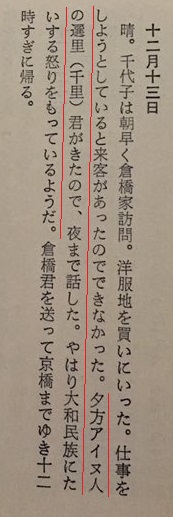 十二月十三日
晴。千代子は朝早く倉橋家訪問。洋服地を買いにいった。仕事を
しようとしていると来客があったのでできなかった。夕方アイヌ人
の選里（千里）君がきたので、夜まで話した。やはり大和民族にた
いする怒りをもっているようだ。倉橋君を送って京橋までゆき十二
時すぎに帰る。